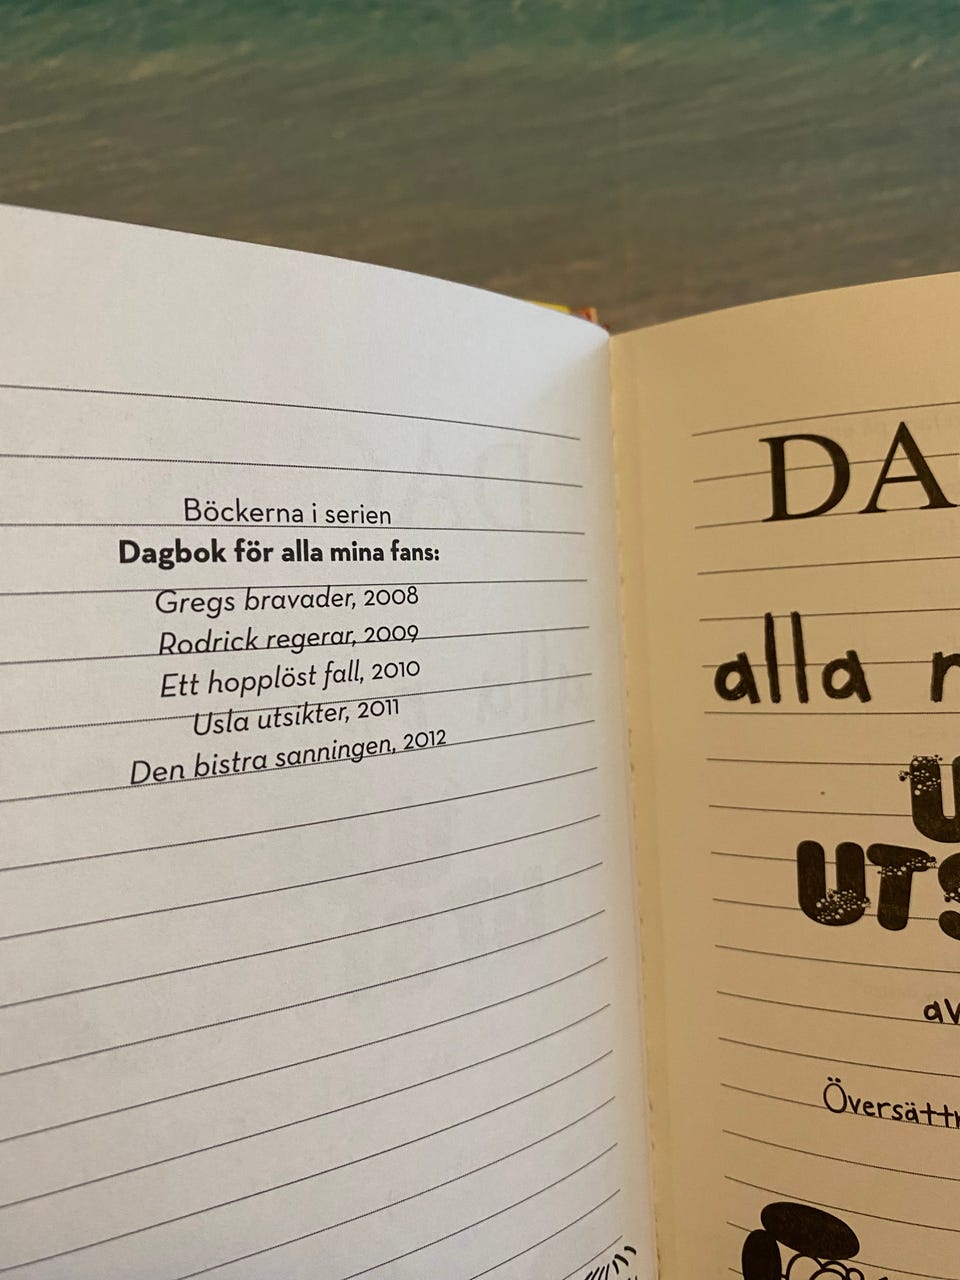 Böckerna i serien
Dagbok för alla mina fans:
Gregs bravader, 2008
Rodrick regerar, 2009
Ett hopplöst fall, 2010
Usla utsikter, 2011
Den bistra sanningen, 2012
DA
alla
av